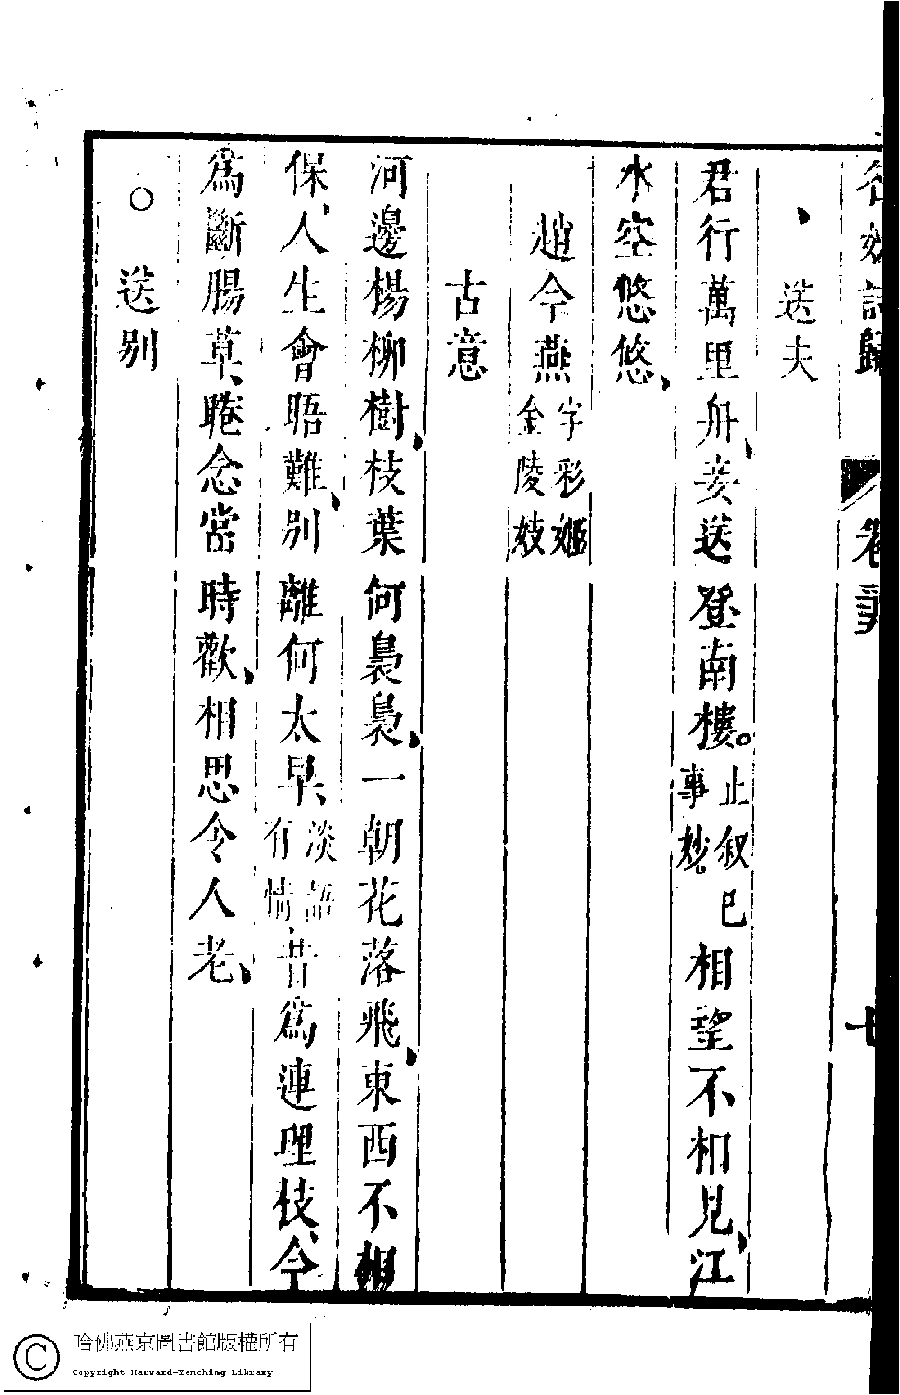 名媛詩歸 卷 七
送夫
君行萬里舟、妾送登南樓。止叙已事妙。相望不相見、江
水空悠悠、
趙今燕 字彩姬金陵妓
古意
河邊楊柳樹、枝葉何裊裊、一朝花落飛、東西不相
保、人生會晤難、别離何太早、淡語有情昔爲連理枝、今
爲斷腸草、睠念當時歡、相思令人老、
○送别
哈佛燕京圖書館版權所有
Copyright Harvard-Yenching Library